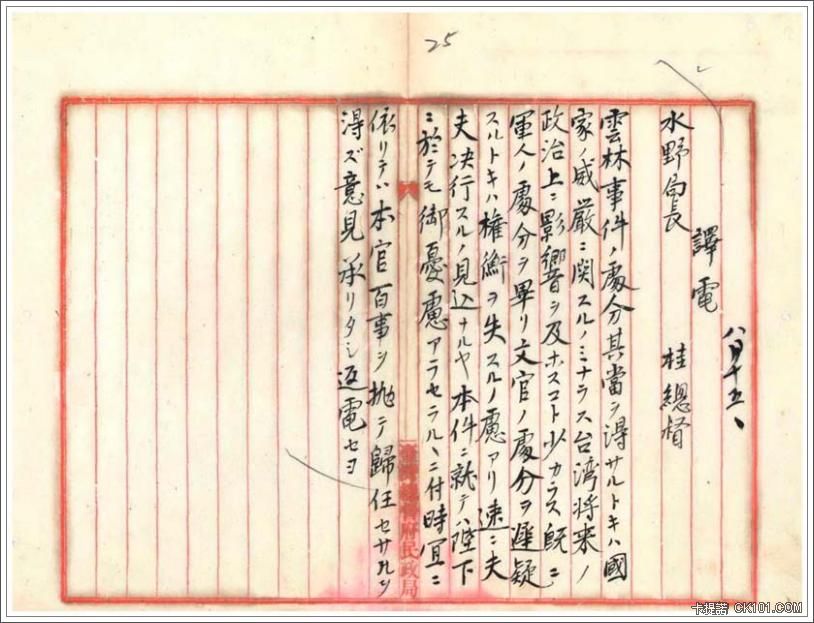 25
八月十五、
譯電
水野局長　桂總督
雲林事件ノ處分其當ヲ得サルトキハ國
家ノ威厳ニ関スルノミナラス台湾将来ノ
政治上ニ影響ヲ及ホスコト少カラス既ニ
軍人ノ處分ヲ畢リ文官ノ處分ヲ遲疑
スルトキハ権衡ヲ失スルノ慮アリ速ニ夫
夫決行スルノ見込ナルヤ本件ニ就テハ陛下
ニ於テモ御憂慮アラセラルヽニ付時宜ニ
依リテハ本官百事ヲ抛テ歸任セサルヲ
得ズ意見承リタシ返電セヨ
府民政局
卡提諾 CK101.COM